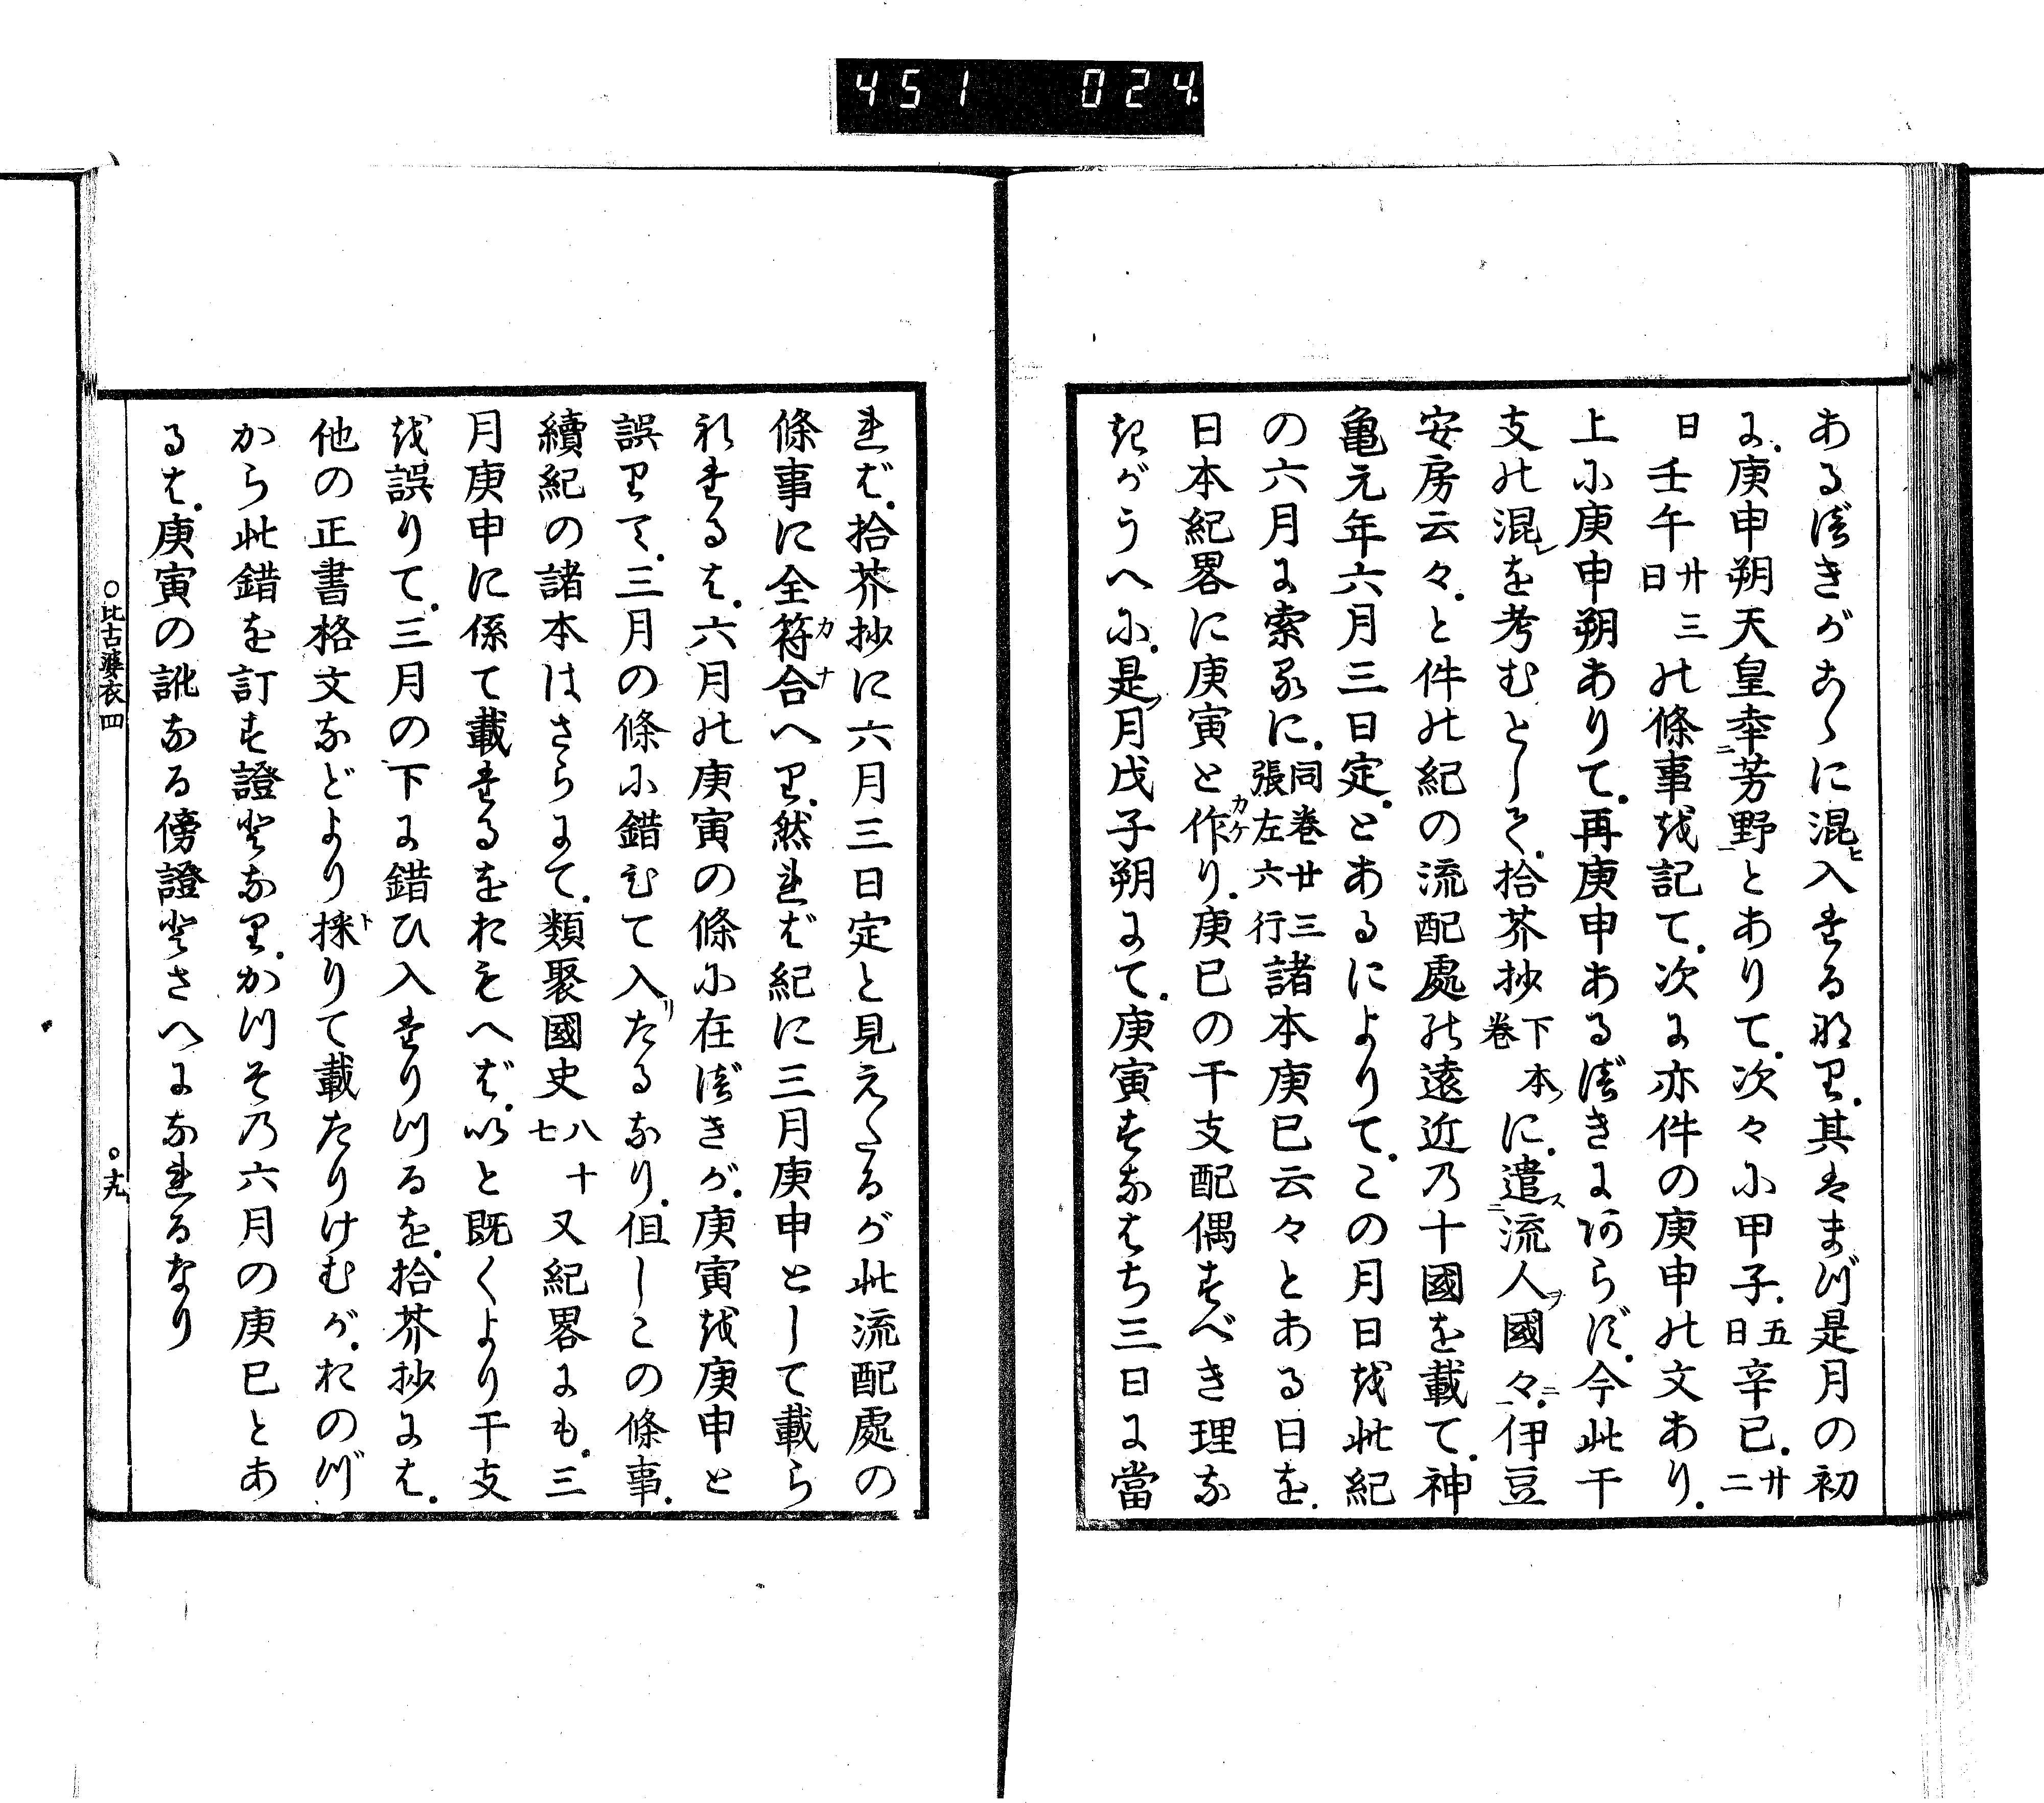 451 024
あるべきがこゝに混ヒ入たるなり、其はまづ是月の初
に、庚申朔天皇幸芳野とありて、次々に甲子、五日辛巳、廿二
日壬午廿三日の條事を記て、次に亦件の庚申の文あり、
上に庚申朔ありて、再庚申あるべきにあらず、今此干
支の混レを考むとして、拾芥抄下卷本に、遣流人國々、伊豆
安房云々、と件の紀の流配處の遠近の十國を載て、神
亀元年六月三日定、とあるによりて、この月日を此紀
の六月に索るに、同卷廿三張左六行諸本庚巳云々とある日を、
日本紀畧に庚寅と作カケり、庚巳の干支配偶すべき理な
きがうへに、是ノ月戊子朔にて、庚寅すなはち三日に當
れば、拾芥抄に六月三日定と見えたるが此流配處の
條事に全符合カナへり、然れば紀に三月庚申として載ら
れたるは、六月の庚寅の條に在べきが、庚寅を庚申と
誤りて、三月の條に錯ひて入リたるなり、但しこの條事、
續紀の諸本はさらにて、類聚國史八十七又紀畧にも、三
月庚申に係て載たるをおもへば、いと既くより干支
を誤りて、三月の下に錯ひ入たりつるを、拾芥抄には、
他の正書格文などより採トりて載たりけむが、おのづ
から此錯を訂す證となり、かつその六月の庚巳とあ
るは、庚寅の訛なる傍證とさへになれるなり
○比古婆衣四 ○十九